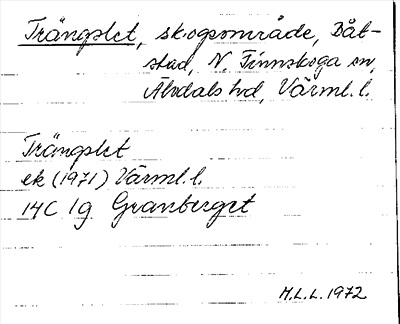 Trängslet, skogsområde, Båt-
stad, N. Finnskoga sn,
Älvdals hd, Värml. l.
Trängslet
ek (1971) Värml. l.
14C 1g Granberget
M.L.L. 1972